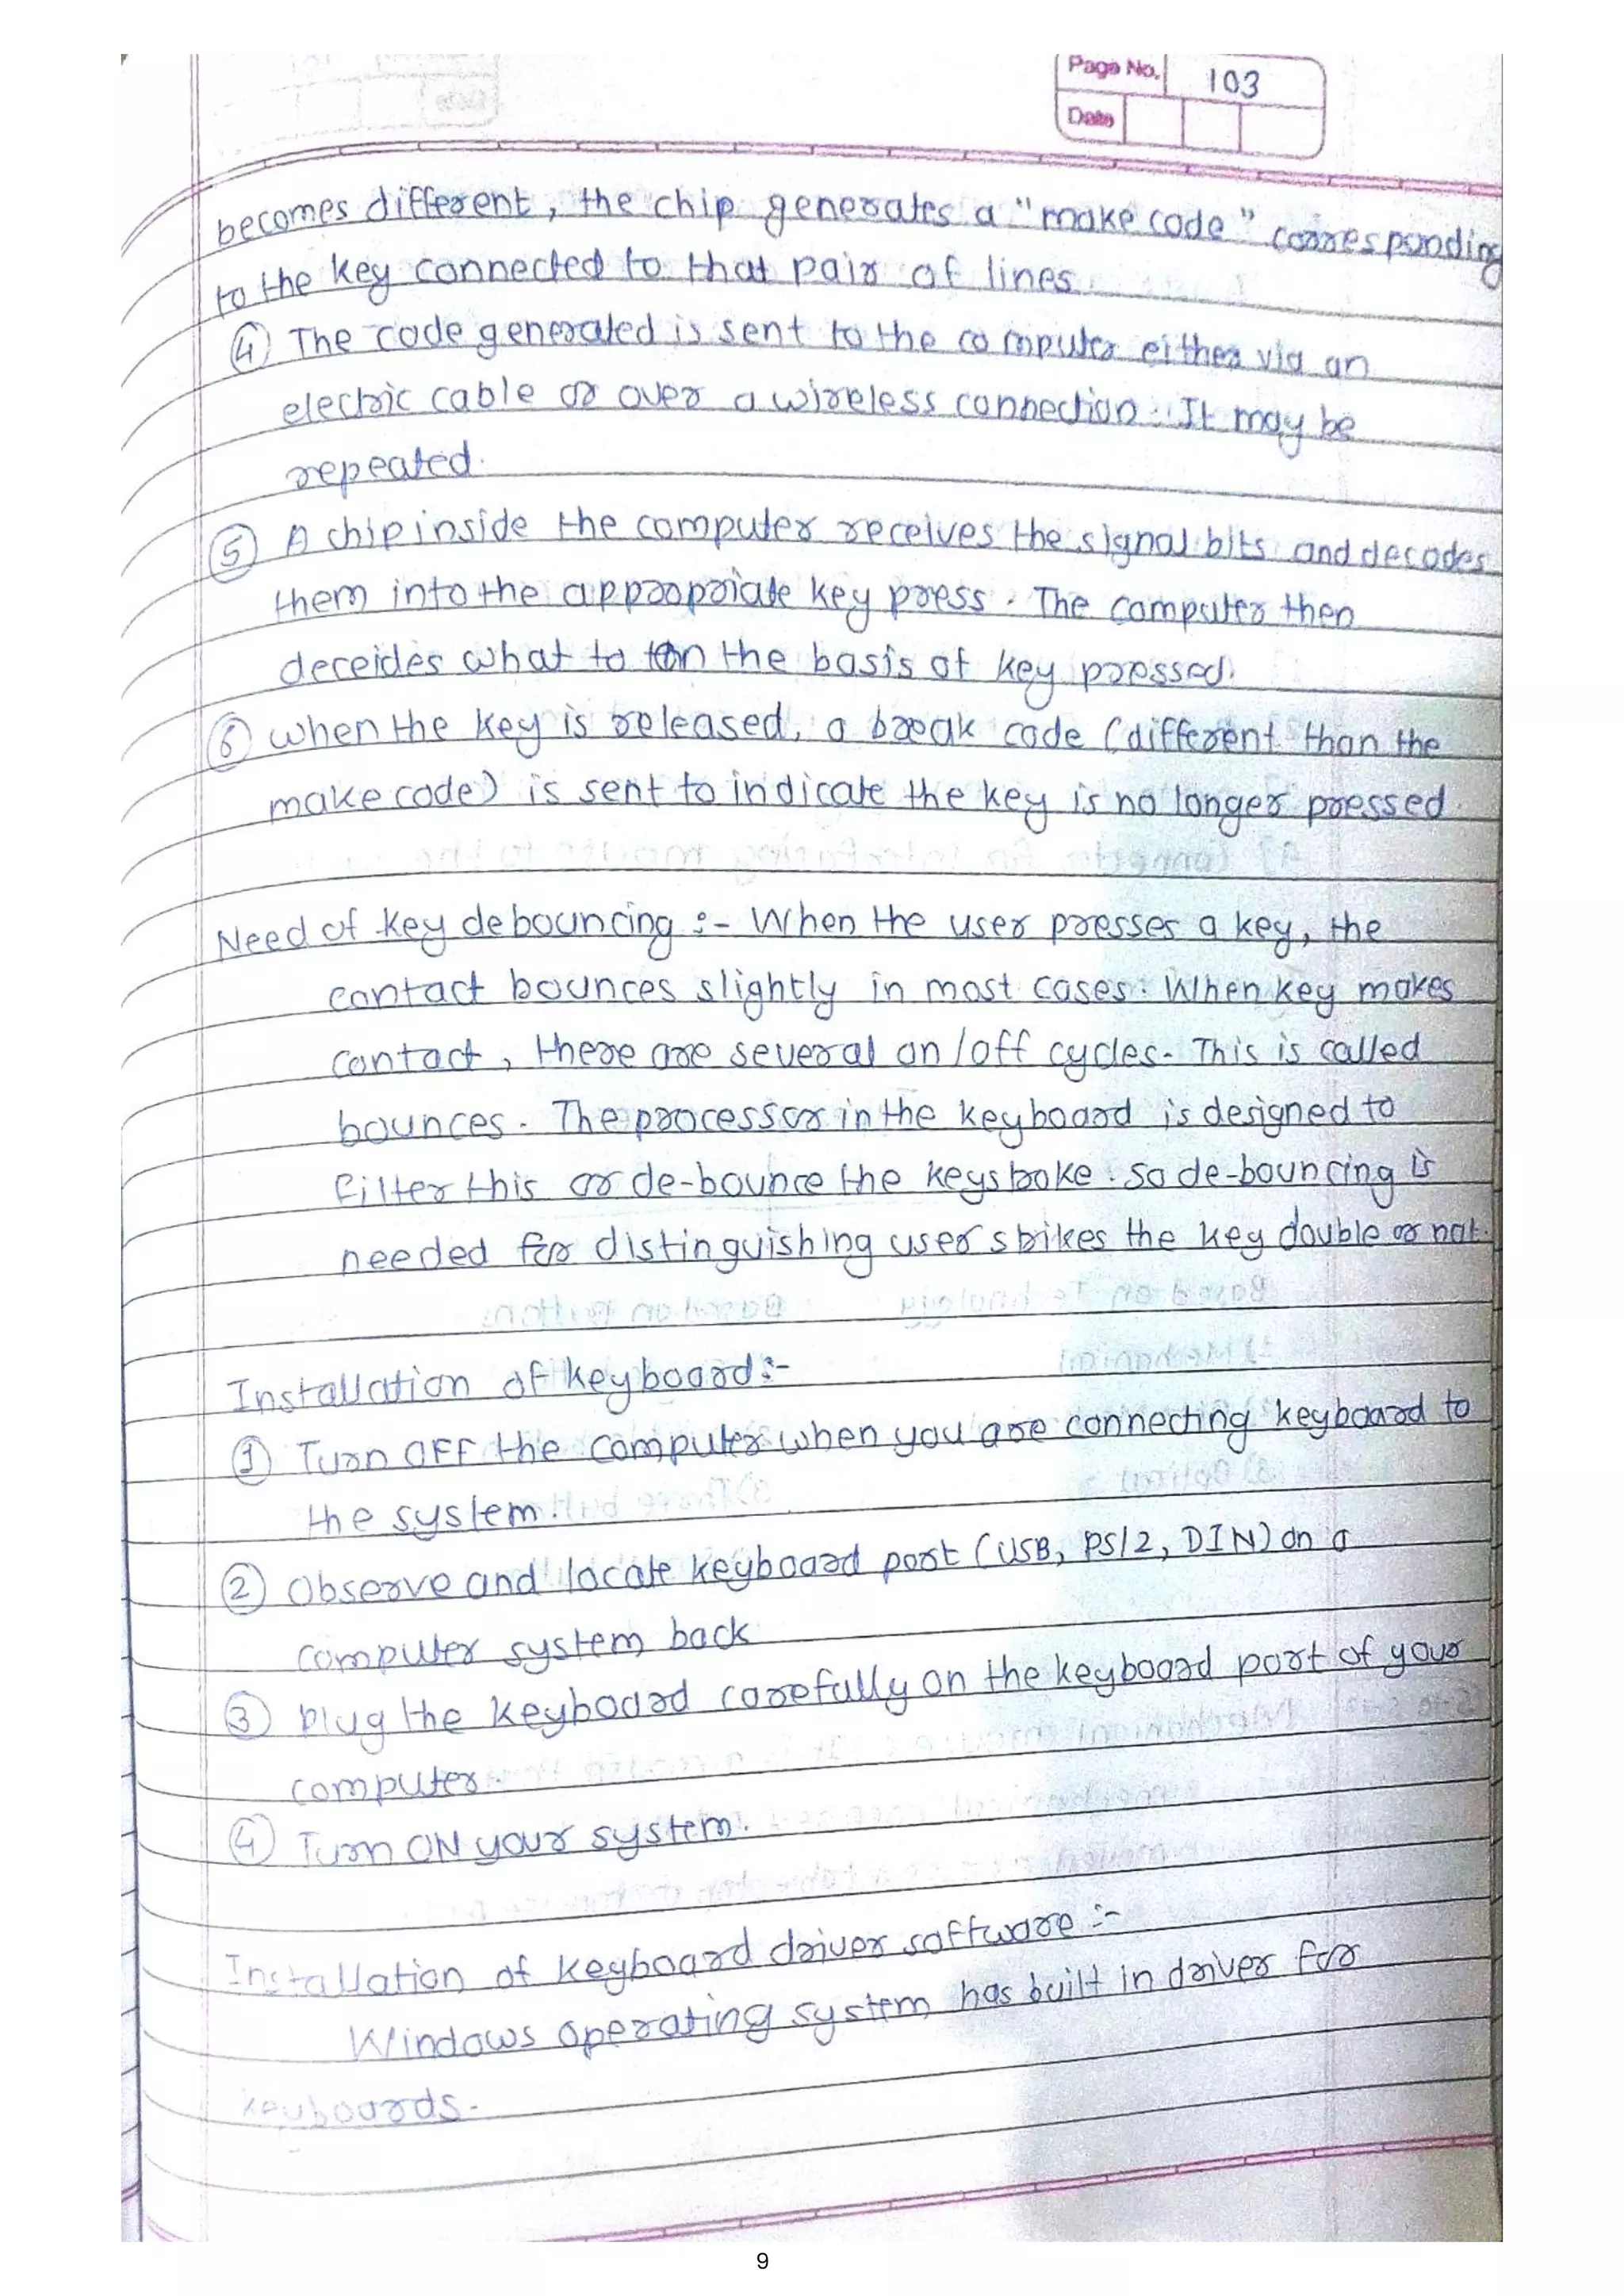 Page No. 103
Date
becomes different, the chip generates a "make code" corresponding
to the key connected to that pair of lines
④ The code generated is sent to the computer either via an
electric cable or over a wireless connection. It may be
repeated.
⑤ A chip inside the computer receives the signal bits and decodes
them into the appropriate key press. The computer then
deceides what to on the basis of key pressed.
⑥ When the key is released, a break code (different than the
make code) is sent to indicate the key is no longer pressed
Need of key debouncing :- When the user presses a key, the
contact bounces slightly in most cases. When key makes
contact, there are several on/off cycles. This is called
bounces. The processor in the keyboard is designed to
filter this or de-bounce the keystroke. So de-bouncing is
needed for distinguishing user strikes the key double or not.
Installation of keyboard:-
① Turn OFF the computer when you are connecting keyboard to
the system.
② Observe and locate keyboard port (USB, PS/2, DIN) on a
computer system back
③ Plug the keyboard carefully on the keyboard port of your
computer.
④ Turn ON your system.
Installation of keyboard driver software :-
Windows operating system has built in driver for
keyboards.
9